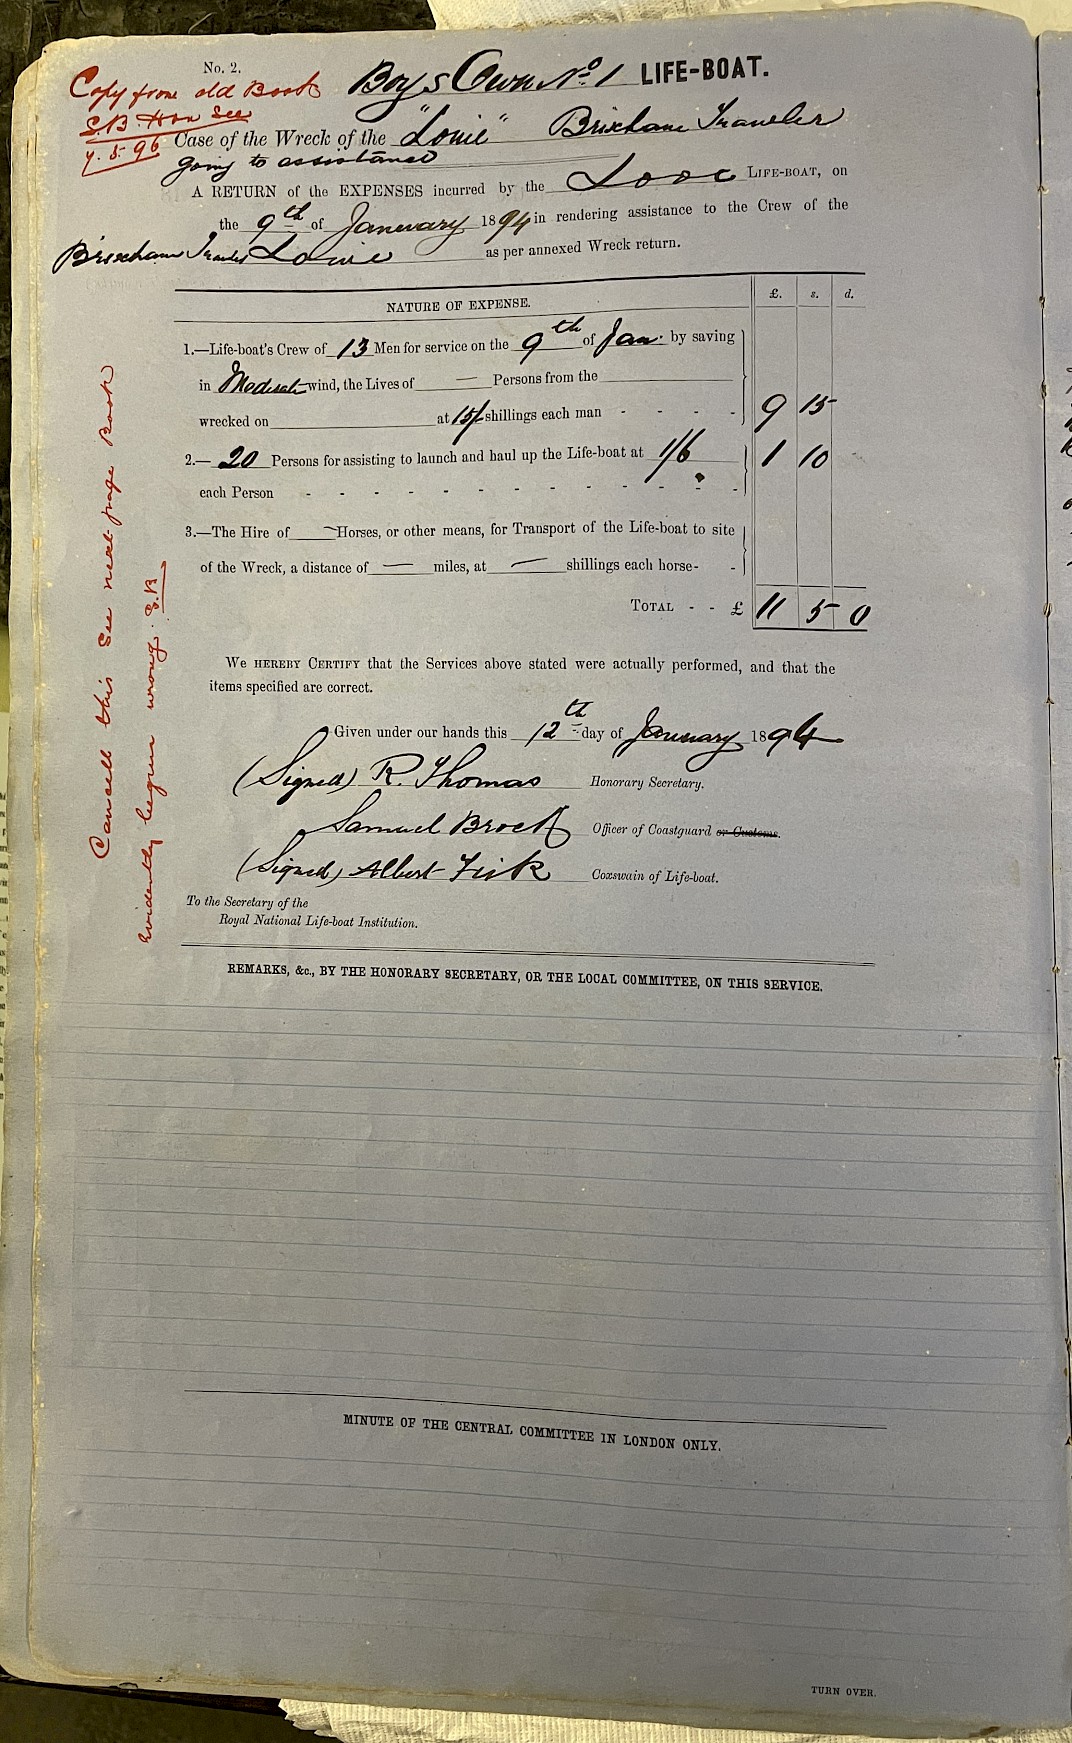 No. 2.
Copy from old Book
S.B. Hon Sec
4. 5. 96
Boys Own No. 1 LIFE-BOAT.
Case of the Wreck of the "Louie" Brixham Trawler
going to assistance
A RETURN of the EXPENSES incurred by the Looe LIFE-BOAT, on
the 9th of Januwary 1894 in rendering assistance to the Crew of the
Brixham Trawler Louie as per annexed Wreck return.
NATURE OF EXPENSE. £. s. d.
1.—Life-boat's Crew of 13 Men for service on the 9th of Jan. by saving
in Moderate wind, the Lives of — Persons from the
wrecked on at 15/- shillings each man - - - - 9 15
2.— 20 Persons for assisting to launch and haul up the Life-boat at 1/6 1 10
each Person - - - - - - - - - - - - -
3.—The Hire of — Horses, or other means, for Transport of the Life-boat to site
of the Wreck, a distance of — miles, at — shillings each horse- -
TOTAL - - £ 11 5 0
We HEREBY CERTIFY that the Services above stated were actually performed, and that the
items specified are correct.
Given under our hands this 12th day of January 1894
(Signed) R. Thomas Honorary Secretary.
Samuel Brock Officer of Coastguard or Customs.
(Signed) Albert Fisk Coxswain of Life-boat.
To the Secretary of the
Royal National Life-boat Institution.
Cancell this See next page Book
evidently begun wrong. S.B
REMARKS, &c., BY THE HONORARY SECRETARY, OR THE LOCAL COMMITTEE, ON THIS SERVICE.
MINUTE OF THE CENTRAL COMMITTEE IN LONDON ONLY.
TURN OVER.